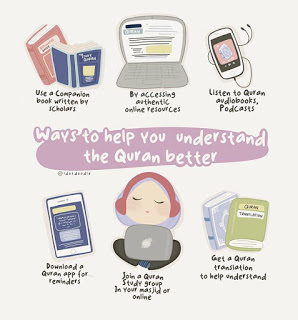 Use a Companion
book written by
scholars
By accessing
authentic
online resources
Listen to Quran
audiobooks,
Podcasts
Ways to help you understand
the Quran better
Download a
Quran app for
reminders
Join a Quran
Study group
In your masjid or
online
Get a Quran
translation
to help understand
QURAN
TRANSLATION